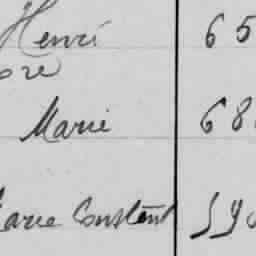 Henri 65
ore
Marie 68
Marie Constant 590